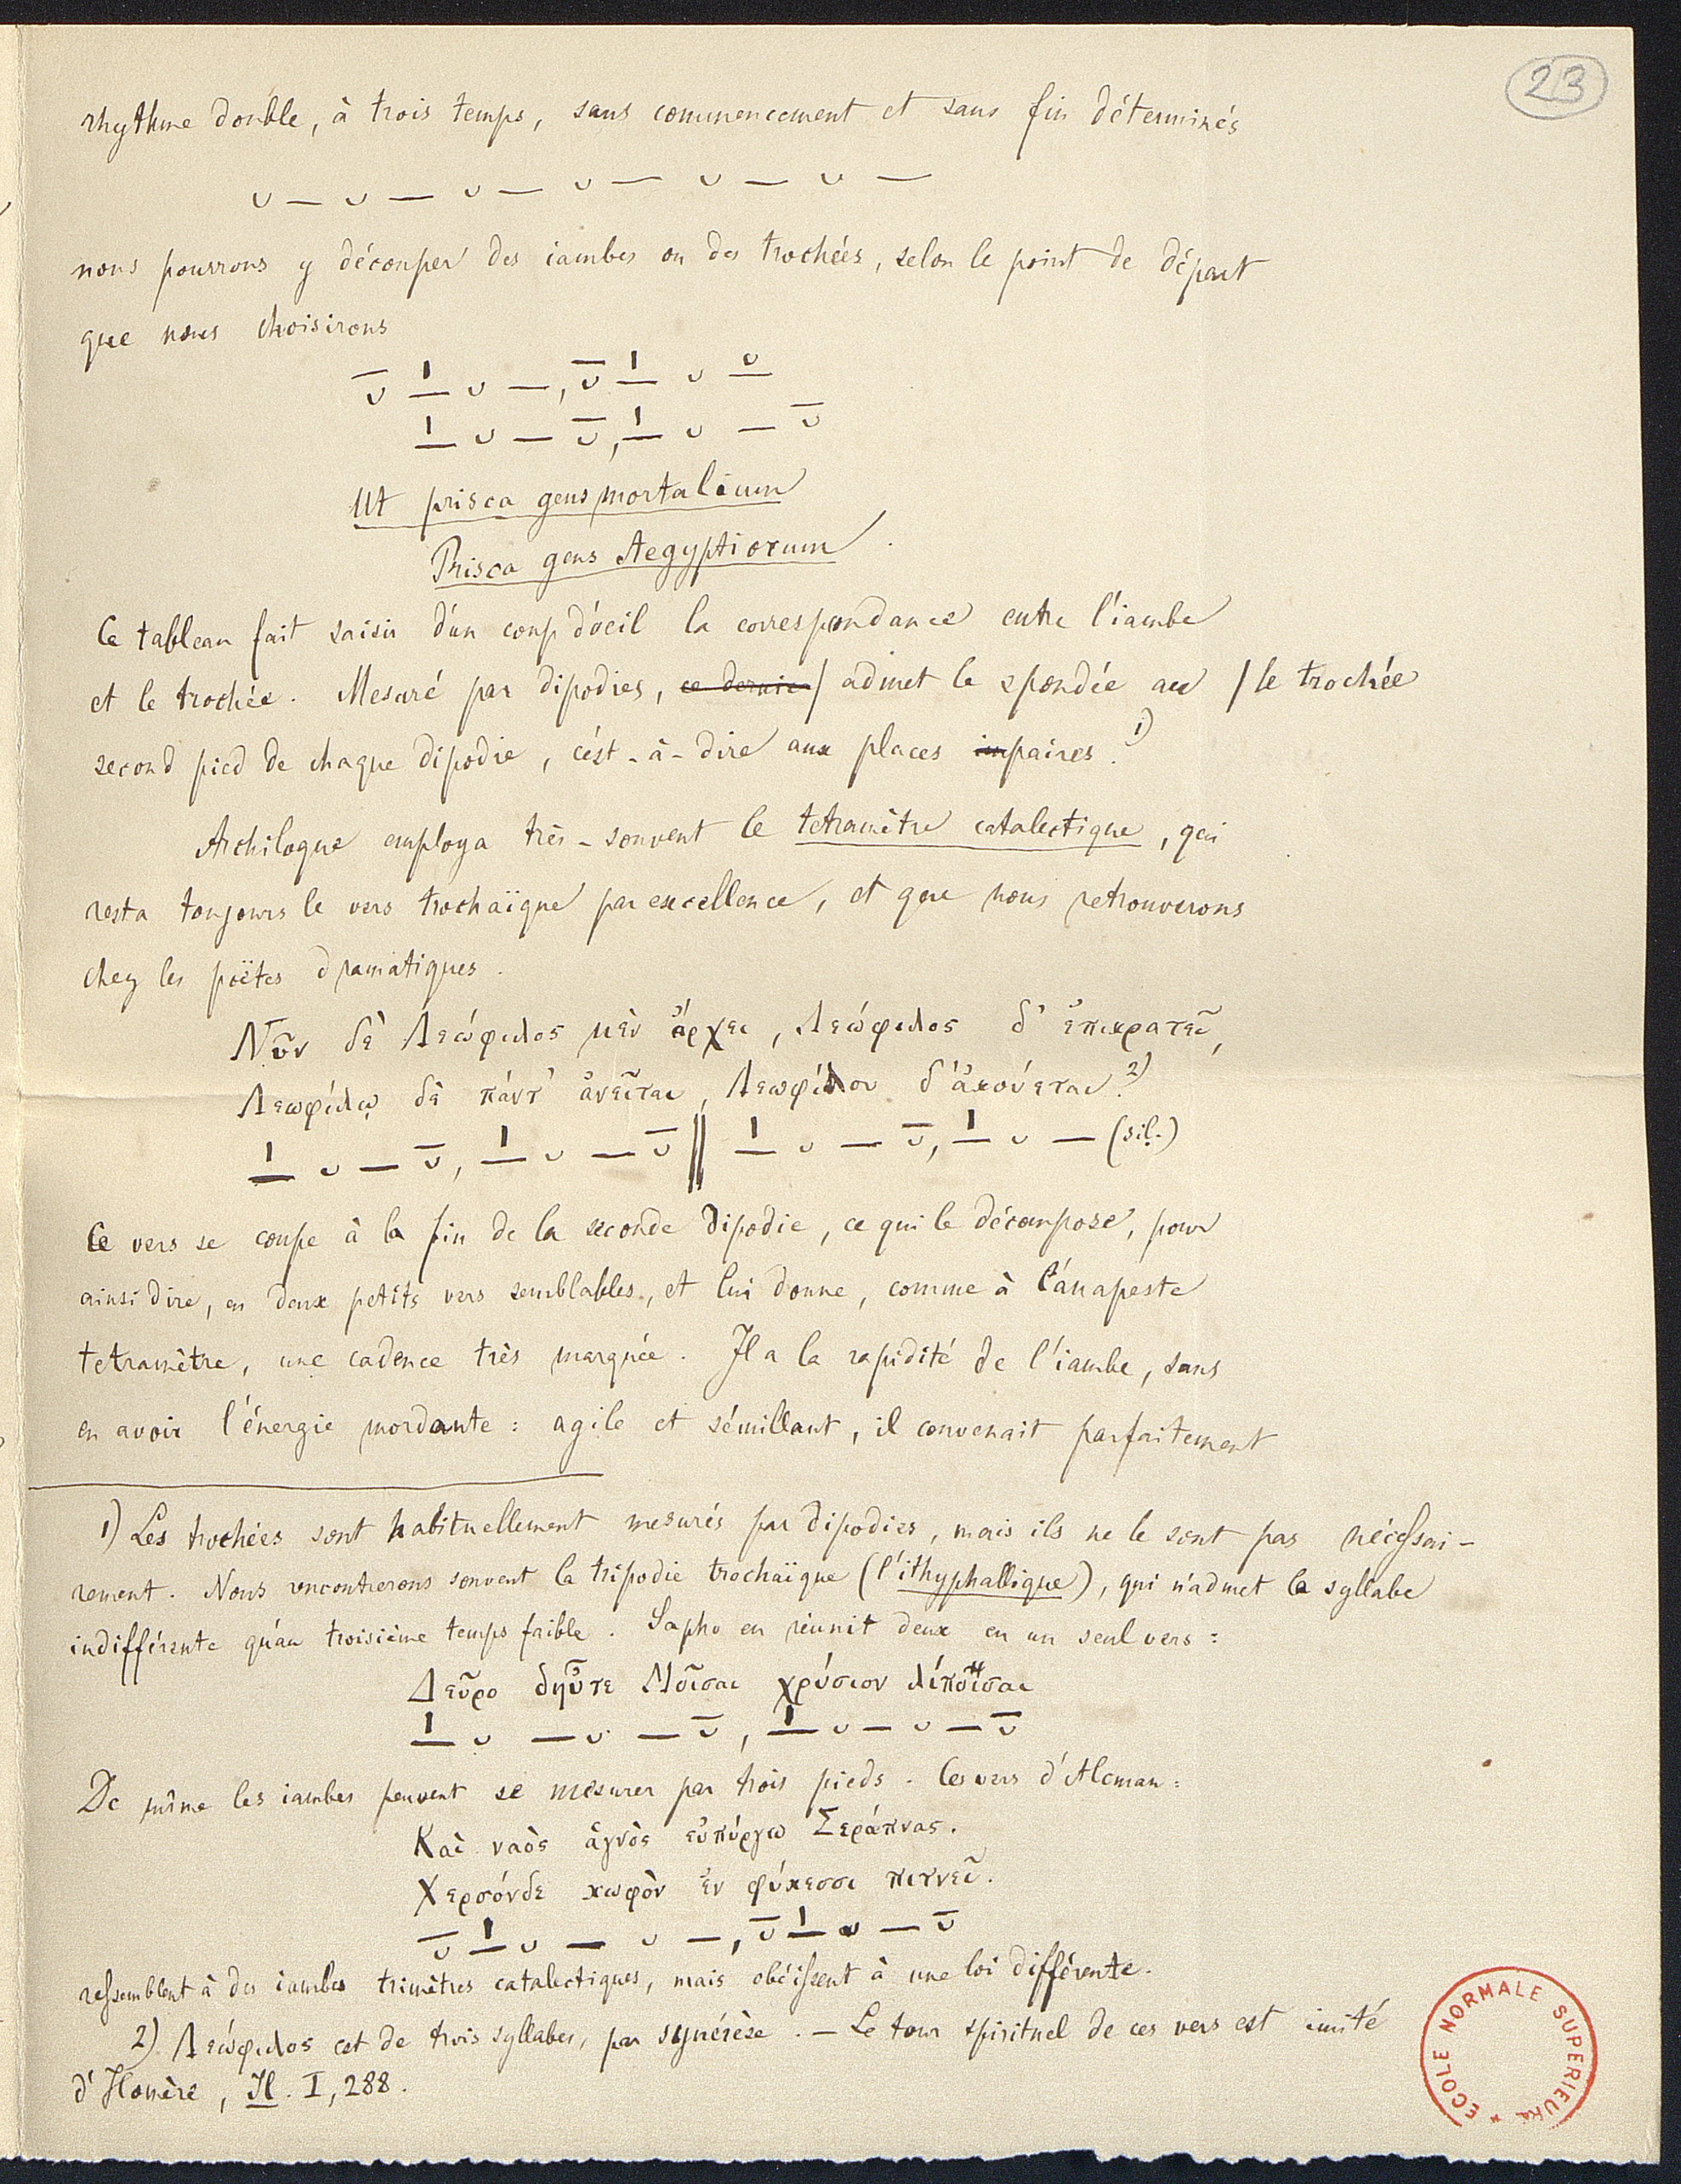 23
rhythme double, à trois temps, sans commencement et sans fin déterminés
∪ — ∪ — ∪ — ∪ — ∪ — ∪ —
nous pourrons y découper des iambes ou des trochées, selon le point de départ
que nous choisirons
Ut prisca gens mortalium
Prisca gens Aegyptiorum.
Ce tableau fait saisir d'un coup d'oeil la correspondance entre l'iambe
et le trochée. Mesuré par dipodies, ce dernier / admet le spondée au / le trochée
second pied de chaque dipodie, c'est-à-dire aux places impaires. 1)
Archiloque employa très-souvent le tetramètre catalectique, qui
resta toujours le vers trochaïque par excellence, et que nous retrouverons
chez les poëtes dramatiques.
Νῦν δὲ Λεώφιλος μὲν ἄρχει, Λεώφιλος δ' ἐπικρατεῖ,
Λεωφίλῳ δὲ πάντ' ἀνεῖται, Λεωφίλου δ' ἀκούεται. 2)
(sil.)
Ce vers se coupe à la fin de la seconde dipodie, ce qui le décompose, pour
ainsi dire, en deux petits vers semblables, et lui donne, comme à l'anapeste
tetramètre, une cadence très marquée. Il a la rapidité de l'iambe, sans
en avoir l'énergie mordante : agile et sémillant, il convenait parfaitement
1) Les trochées sont habituellement mesurés par dipodies, mais ils ne le sont pas nécessai-
rement. Nous rencontrerons souvent la tripodie trochaïque (l'ithyphallique), qui n'admet la syllabe
indifférente qu'au troisième temps faible. Sapho en réunit deux en un seul vers :
Δεῦρο δηὖτε Μοῖσαι χρύσιον λίποισαι
De même les iambes peuvent se mesurer par trois pieds. Ces vers d'Alcman :
Καὶ ναὸς ἁγνὸς εὐπύργω Σεράπνας.
Χερσόνδε κωφὸν ἐν φύκεσσι πιτνεῖ.
ressemblent à des iambes trimètres catalectiques, mais obéissent à une loi différente.
2) Λεώφιλος est de trois syllabes, par synérèse. — Le tour spirituel de ces vers est imité
d'Homère, Il. I, 288.
ECOLE NORMALE SUPERIEURE